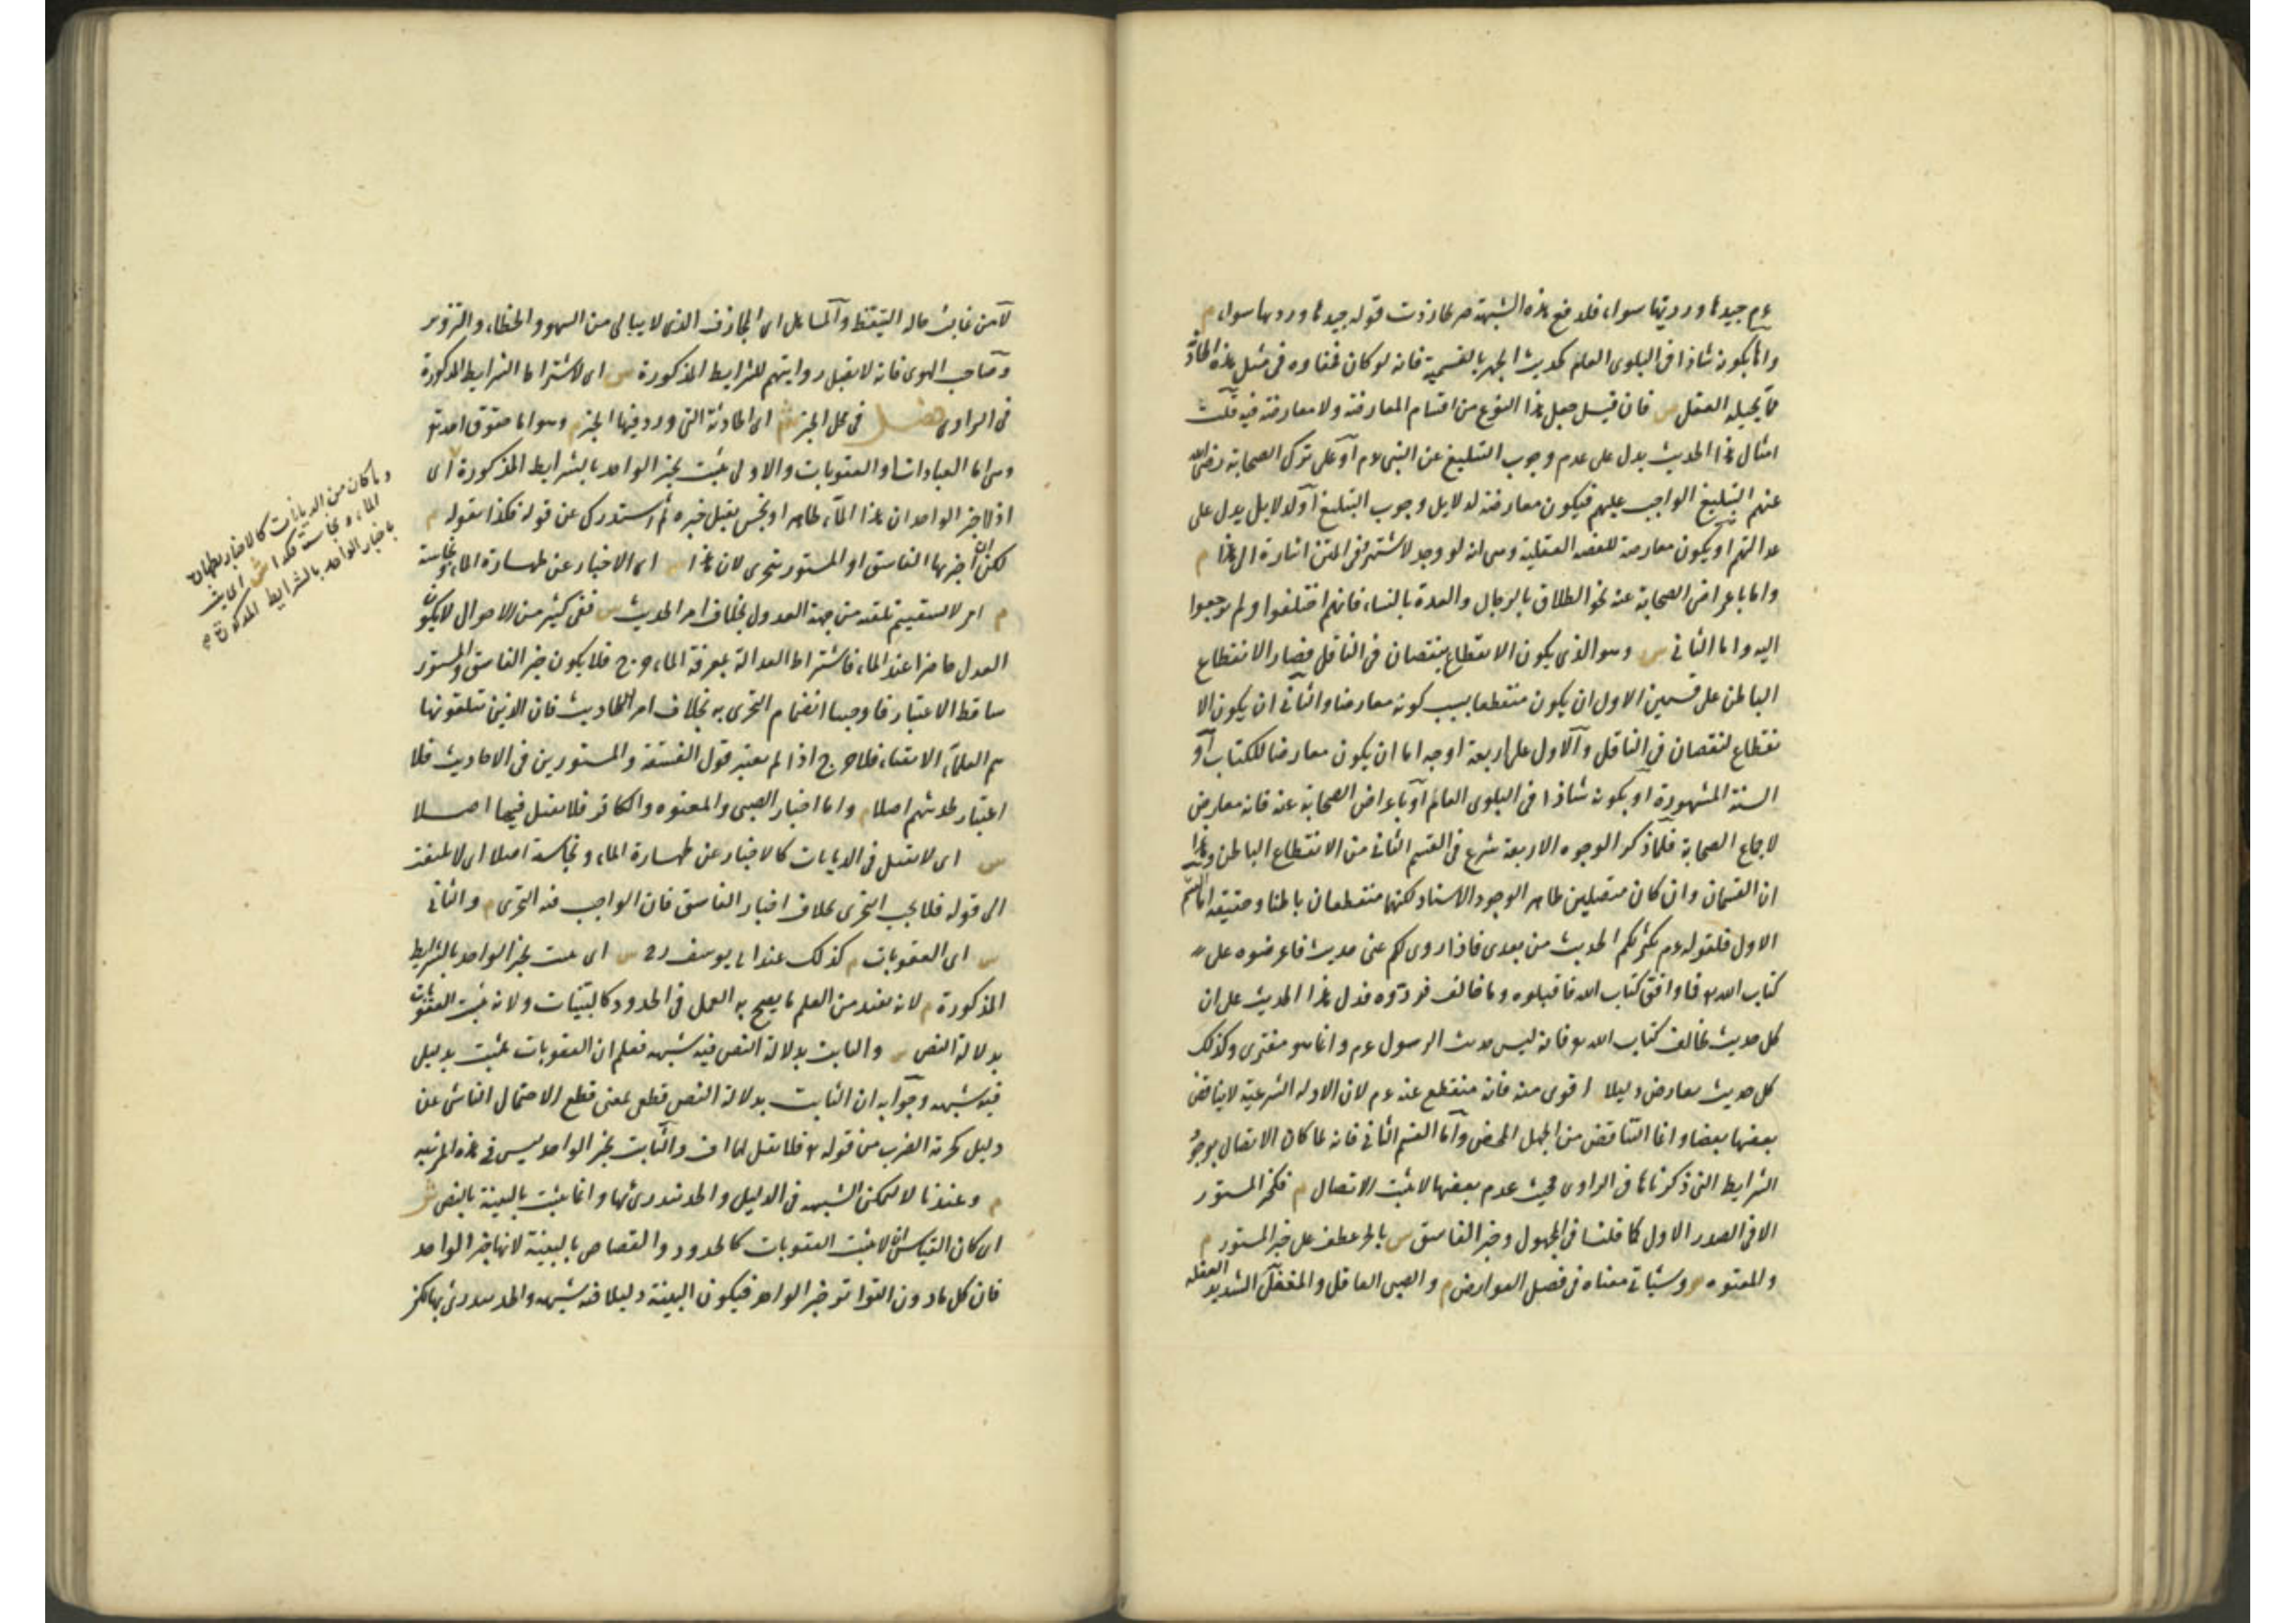 عم جيدها ورديها سواء فلدفع هذه الشبهة صرحا زدت قوله جيدها ورديها سواء م
واما بكونه شاذا في البلوى العام كحديث الجهر بالتسمية فانه لو كان لخفاؤه في مثل هذه الحادثة
مما يحيله العقل ش فان قيل جعل هذا النوع من اقسام المعارضة ولا معارضة فيه قلت
امثال هذا الحديث يدل على عدم وجوب التبليغ عن النبي عم او على ترك الصحابة رضي الله
عنهم التبليغ الواجب عليهم فيكون معارضة لدلايل وجوب التبليغ او لدلايل يدل على
عدالتهم او يكون معارضة للقضية العقلية وهي انه لو وجد لاشتهر وفي المتن اشارة الى هذا م
واما باعراض الصحابة عنه نحو الطلاق بالرجال والعدة بالنساء فانهم اختلفوا ولم يرجعوا
اليه واما الثاني ش وهو الذي يكون الانقطاع بنقصان في الناقل فصار الانقطاع
الباطن على قسمين الاول ان يكون منقطعا بسبب كونه معارضا والثاني ان يكون الا
نقطاع لنقصان في الناقل والاول على اربعة اوجه اما ان يكون معارضا للكتاب او
السنة المشهورة او بكونه شاذا في البلوى العام او باعراض الصحابة عنه فانه معارض
لاجماع الصحابة فلما ذكر الوجوه الاربعة شرع في القسم الثاني من الانقطاع الباطن وهذا
ان القسمان وان كان متصلين ظاهر الوجود الاسناد لكنهما منقطعان باطنا وحقيقة اما القسم
الاول فلقوله عم يكثر لكم الحديث من بعدي فاذا روى لكم عني حديث فاعرضوه على
كتاب الله تع فما وافق كتاب الله فاقبلوه وما خالف فردوه فدل هذا الحديث على ان
كل حديث يخالف كتاب الله تع فانه ليس حديث الرسول عم وانما هو مفترى وكذلك
كل حديث يعارض دليلا اقوى منه فانه منقطع عنه عم لان الادلة الشرعية لا يناقض
بعضها بعضا وانما التناقض من الجهل المحض واما القسم الثاني فانه لما كان الاتصال بوجود
الشرايط التي ذكرناها في الراوي فحيث عدم بعضها لا يثبت الاتصال م فكخبر المستور
الا في الصدر الاول كما قلنا في المجهول وخبر الفاسق ش بالجر عطف على خبر المستور م
والمعتوه ش وسياتي معناه في فصل العوارض م والصبي العاقل والمغفل الشديد الغفلة
لا من غالب حاله التيقظ والمساهل اى المجازف الذى لا يبالى من السهو والخطاء والتزوير
وصاحب الهوى فانه لا يقبل روايتهم للشرايط المذكورة ش اى لاشتراط الشرايط المذكورة
في الراوى فصل في محل الخبر ش اى الحادثة التي ورد فيها الخبر م وهو اما حقوق الله تع
وهي اما العبادات او العقوبات والاول يثبت بخبر الواحد بالشرايط المذكورة اى
اذا اخبر الواحد ان هذا الماء طاهر او نجس يقبل خبره ثم استدرك عن قوله هكذا بقوله م
لكن ان اخبر بها الفاسق او المستور يتحرى لان هذا ش اى الاخبار عن طهارة الماء ونجاسته
م امر لا يستقيم تلقيه من جهة العدول بخلاف امر الحديث ش ففي كثير من الاحوال لا يكون
العدل حاضرا عند الماء فاشتراط العدالة بمعرفة الماء حرج فلا يكون خبر الفاسق والمستور
ساقط الاعتبار فاوجبنا انضمام التحرى به بخلاف امر الحاديث فان الذين يتلقونها
هم العلماء الاتقياء فلا حرج اذا لم يعتبر قول الفسقة والمستورين في الاحاديث فلا
اعتبار لحديثهم اصلا م واما اخبار الصبي والمعتوه والكافر فلا يقبل فيها اصلا
ش اى لا يقبل في الديانات كالاخبار عن طهارة الماء ونجاسته اصلا اى لا يلتفت
الى قوله فلا يجب التحرى بخلاف اخبار الفاسق فان الواجب فيه التحرى م والثاني
ش اى العقوبات م كذلك عند ابي يوسف رح ش اى يثبت بخبر الواحد بالشرايط
المذكورة م لانه يفيد من العلم ما يصح به العمل في الحدود كالبينات ولانه يثبت العقوبات
بدلالة النص ش والثابت بدلالة النص فيه شبهة فعلم ان العقوبات يثبت بدليل
فيه شبهة وجوابه ان الثابت بدلالة النص قطعي بمعنى قطع الاحتمال الناشى عن
دليل كحرمة الضرب من قوله تع فلا تقل لهما اف والثابت بخبر الواحد ليس في هذه المرتبة
م وعندنا لا لتمكن الشبهة في الدليل والحد يندرئ بها وانما يثبت بالبينة بالنص ش
اى كان القياس ان لا يثبت العقوبات كالحدود والقصاص بالبينة لانها خبر الواحد
فان كل ما دون التواتر خبر الواحد فيكون البينة دليلا فيه شبهة والحد يندرئ بها لكن
وما كان من الديانات كالاخبار بطهارة
الماء ونجاسته هكذا ش اى يثبت
باخبار الواحد بالشرايط المذكورة م